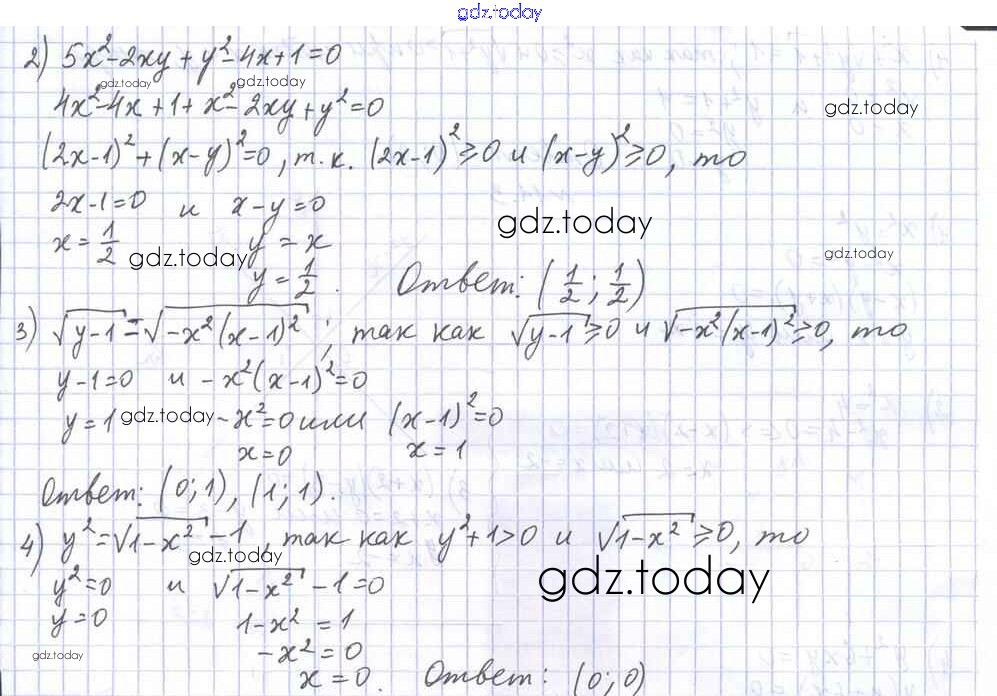 gdz.today
2) 5x²-2xy+y²-4x+1=0
gdz.today gdz.today
4x²-4x+1+x²-2xy+y²=0 gdz.today
(2x-1)²+(x-y)²=0, т.к. (2x-1)²≥0 и (x-y)²≥0, то
2x-1=0 и x-y=0
gdz.today
x=1/2 gdz.today y=x gdz.today
y=1/2. Ответ: (1/2; 1/2)
3) √(y-1)=√(-x²(x-1)²); так как √(y-1)≥0 и √(-x²(x-1)²)≥0, то
y-1=0 и -x²(x-1)²=0
y=1 gdz.today -x²=0 или (x-1)²=0
x=0 x=1
Ответ: (0;1), (1;1).
4) y²=√(1-x²)-1, так как y²+1>0 и √(1-x²)≥0, то
gdz.today
y²=0 и √(1-x²)-1=0 gdz.today
y=0 1-x²=1
-x²=0
gdz.today x=0. Ответ: (0;0)